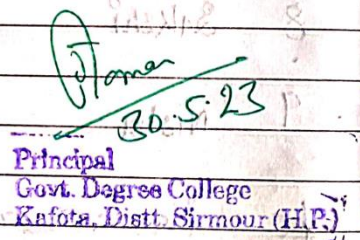 30.5.23
Principal
Govt. Degree College
Kafota, Distt. Sirmour (H.P.)